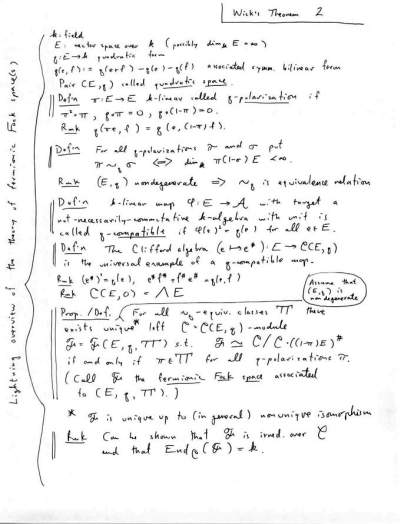 Wick's Theorem 2
Lightning overview of the theory of fermionic Fock space(s)
k: field
E: vector space over k (possibly dim_k E = ∞)
q: E → k quadratic form
q(e,f) := q(e+f) - q(e) - q(f) associated symm. bilinear form
Pair (E,q) called quadratic space.
Def'n π: E → E k-linear called q-polarization if
π² = π, q∘π = 0, q∘(1-π) = 0.
Rmk q(πe, f) = q(e, (1-π)f).
Def'n For all q-polarizations π and σ put
π ~_q σ ⟺ dim_k π(1-σ)E < ∞.
Rmk (E,q) nondegenerate ⟹ ~_q is equivalence relation
Def'n k-linear map φ: E → A with target a
not-necessarily-commutative k-algebra with unit is
called q-compatible if φ(e)² = q(e) for all e∈E.
Def'n The Clifford algebra (e ↦ e^#): E → C(E,q)
is the universal example of a q-compatible map.
Rmk (e^#)² = q(e), e^# f^# + f^# e^# = q(e,f)
Rmk C(E,0) = ΛE
Assume that
(E,q) is
nondegenerate
Prop./Def. For all ~_q-equiv. classes Π there
exists unique* left C = C(E,q)-module
F = F(E,q,Π) s.t. F ≃ C/C·((1-π)E)^#
if and only if π∈Π for all q-polarizations π.
(Call F the fermionic Fock space associated
to (E,q,Π).)
* F is unique up to (in general) nonunique isomorphism
Rmk Can be shown that F is irred. over C
and that End_C(F) = k.